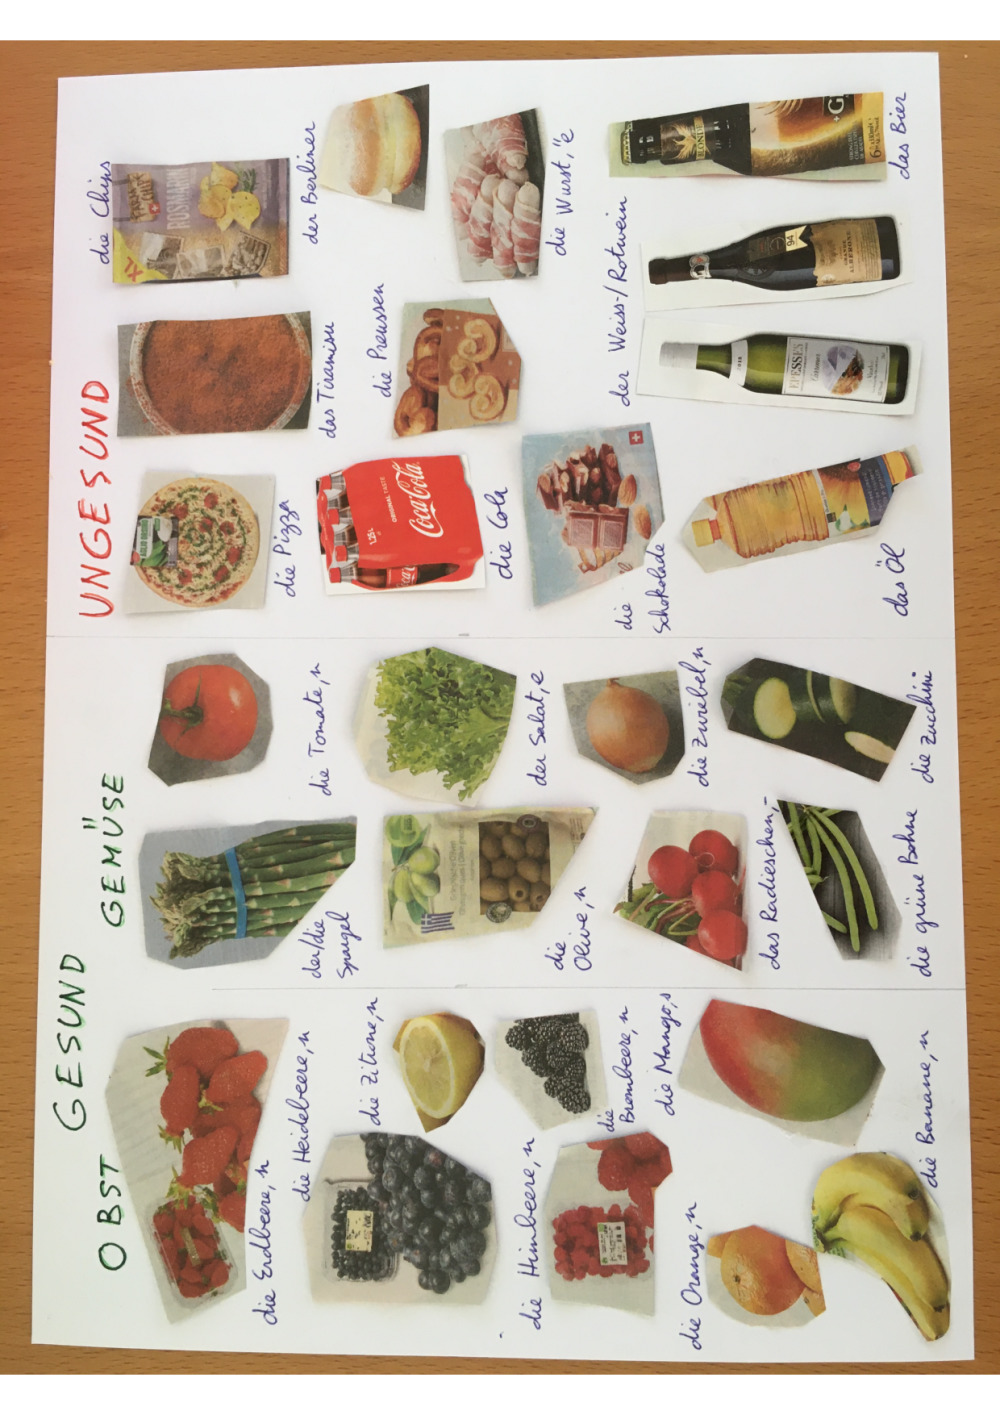 GESUND
OBST
GEMÜSE
UNGESUND
die Erdbeere, n
die Heidelbeere, n
die Zitrone, n
die Himbeere, n
die
Brombeere, n
die Orange, n
die Mango, s
die Banane, n
der/die
Spargel
die Tomate, n
die
Olive, n
der Salat, e
das Radieschen, -
die Zwiebel, n
die grüne Bohne
die Zucchini
die Pizza
das Tiramisu
die Chips
ROSMARIN
der Berliner
die Cola
ORIGINAL TASTE
Coca-Cola
1.25L
die Preussen
die Wurst, "e
die
Schokolade
der Weiss-/Rotwein
EPESSES
94
das Öl
das Bier